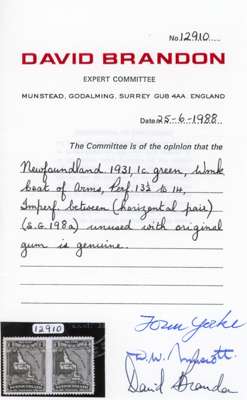 No. 12910
DAVID BRANDON
EXPERT COMMITTEE
MUNSTEAD, GODALMING, SURREY GU8 4AA ENGLAND
Date 25-6-1988
The Committee is of the opinion that the
Newfoundland 1931, 1c green, Wmk
Coat of Arms, Perf. 13½ to 14,
Imperf between (horizontal pair)
(S.G. 198a) unused with original
gum is genuine.
12910
David Brandon